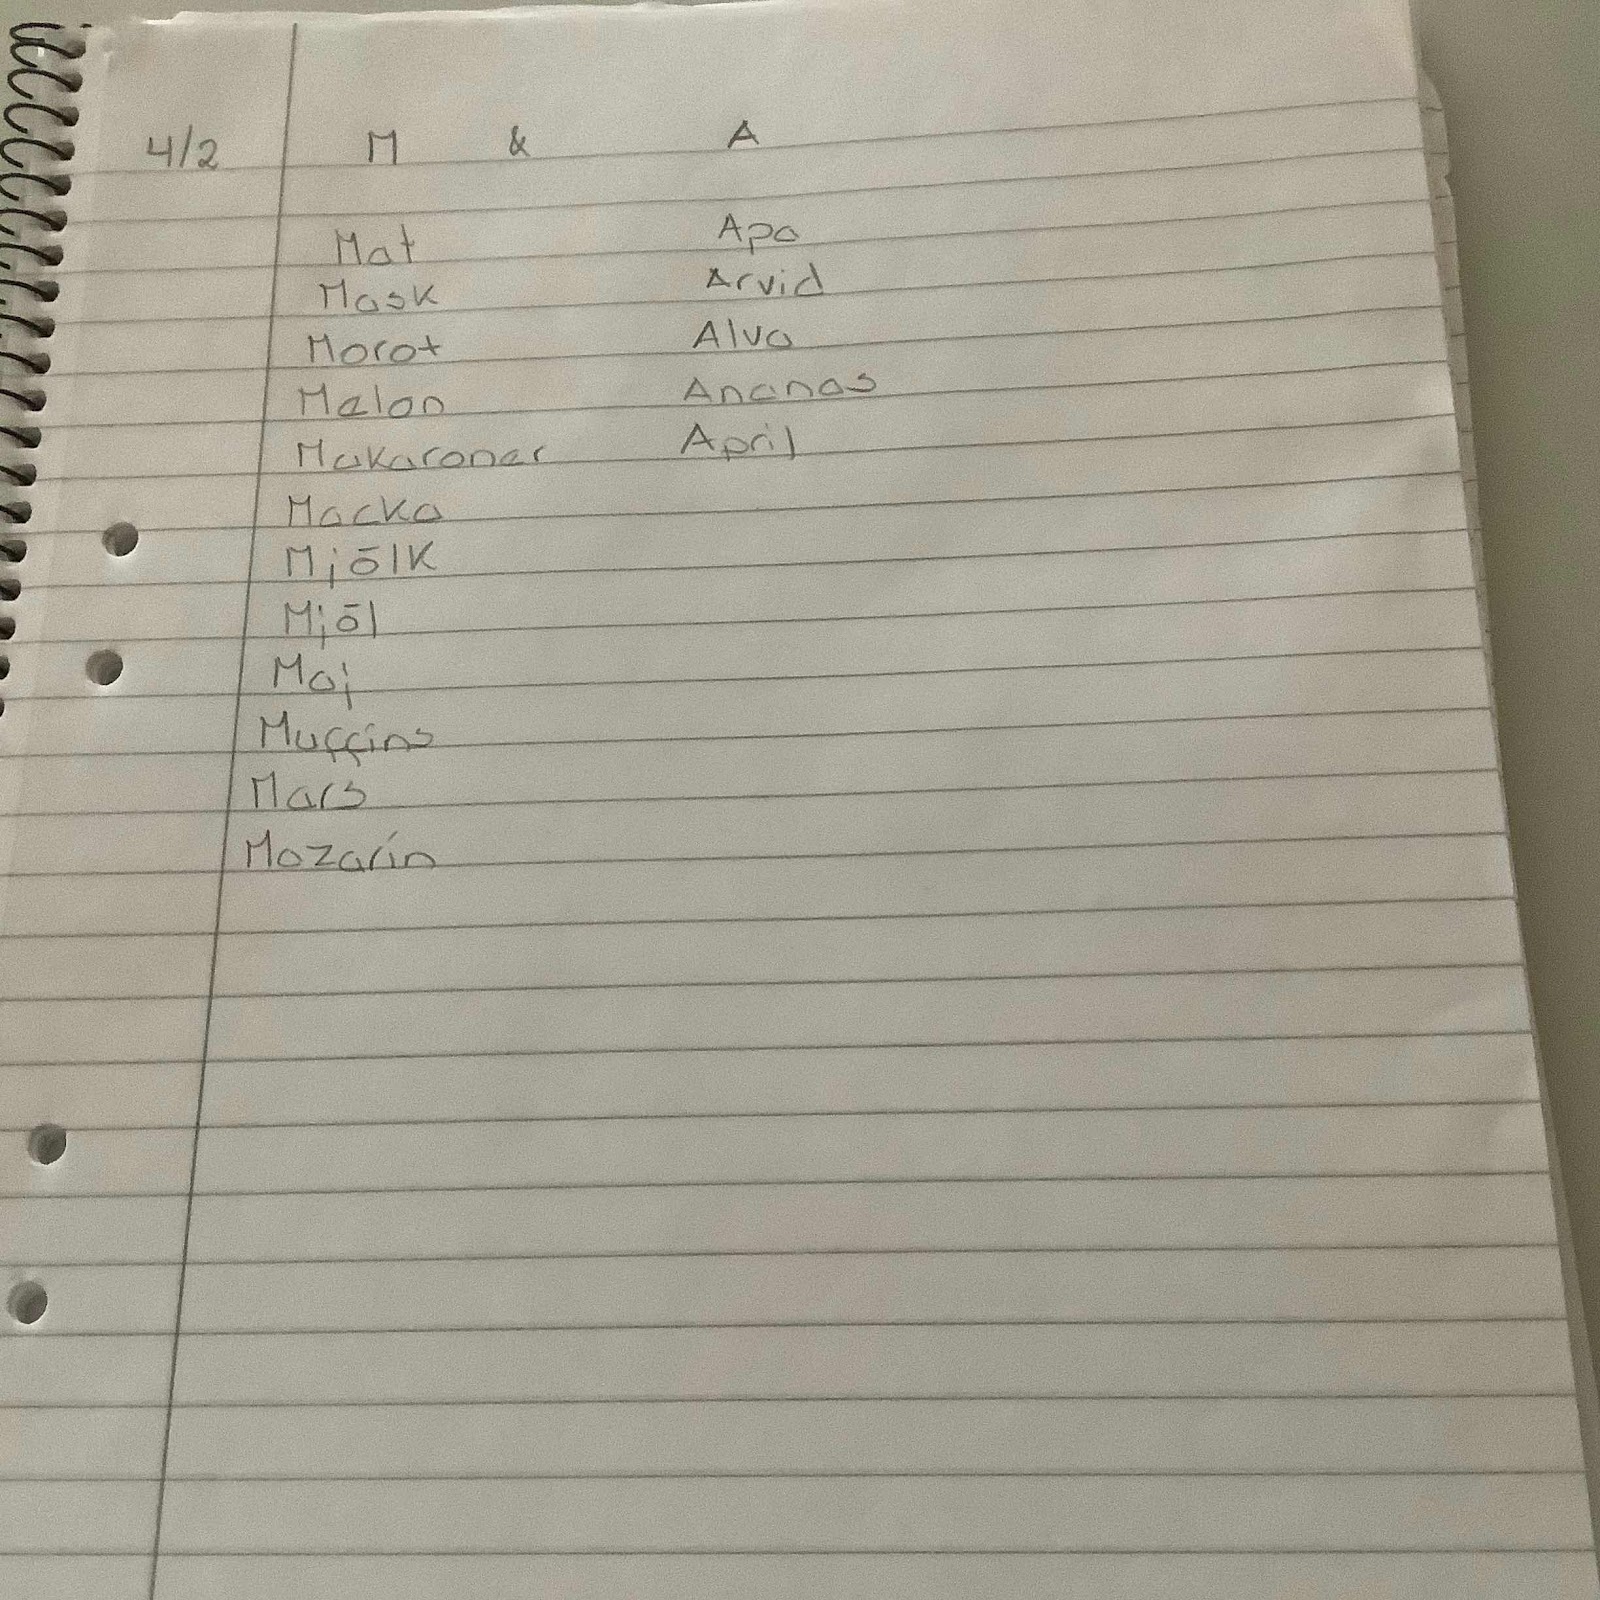 4/2 M & A
Mat Apa
Mask Arvid
Morot Alva
Melon Ananas
Makaroner April
Macka
Mjölk
Mjöl
Maj
Muffins
Mars
Mazarin